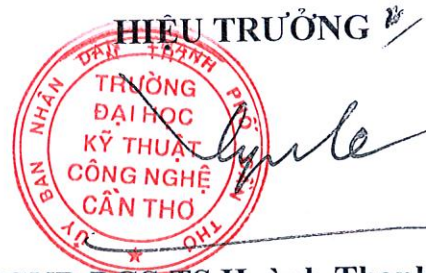 HIỆU TRƯỞNG
ỦY BAN NHÂN DÂN THÀNH PHỐ CẦN THƠ
TRƯỜNG
ĐẠI HỌC
KỸ THUẬT
CÔNG NGHỆ
CẦN THƠ
PGS.TS Huỳnh Thanh